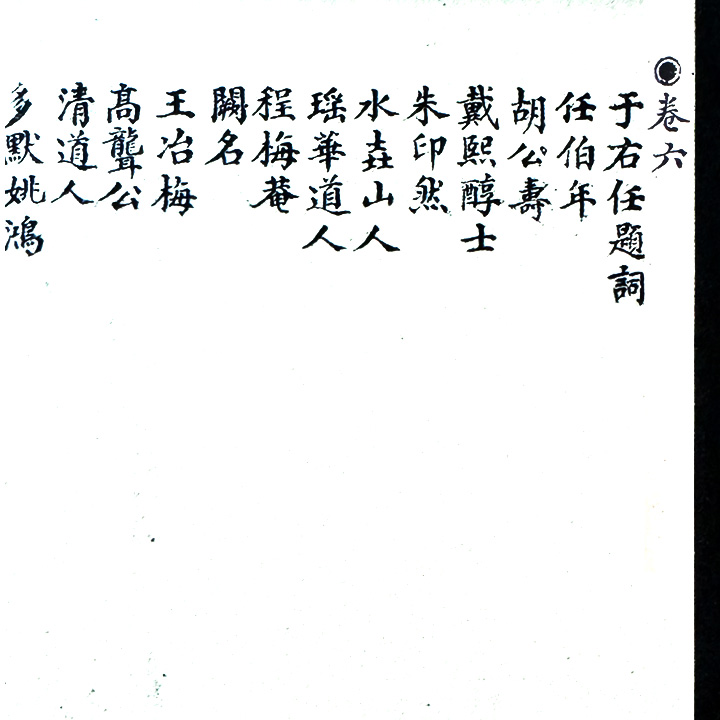 卷六
于右任題詞
任伯年
胡公壽
戴熙醇士
朱印然
水壵山人
瑶華道人
程梅菴
闕名
王冶梅
高聾公
清道人
多默姚鴻